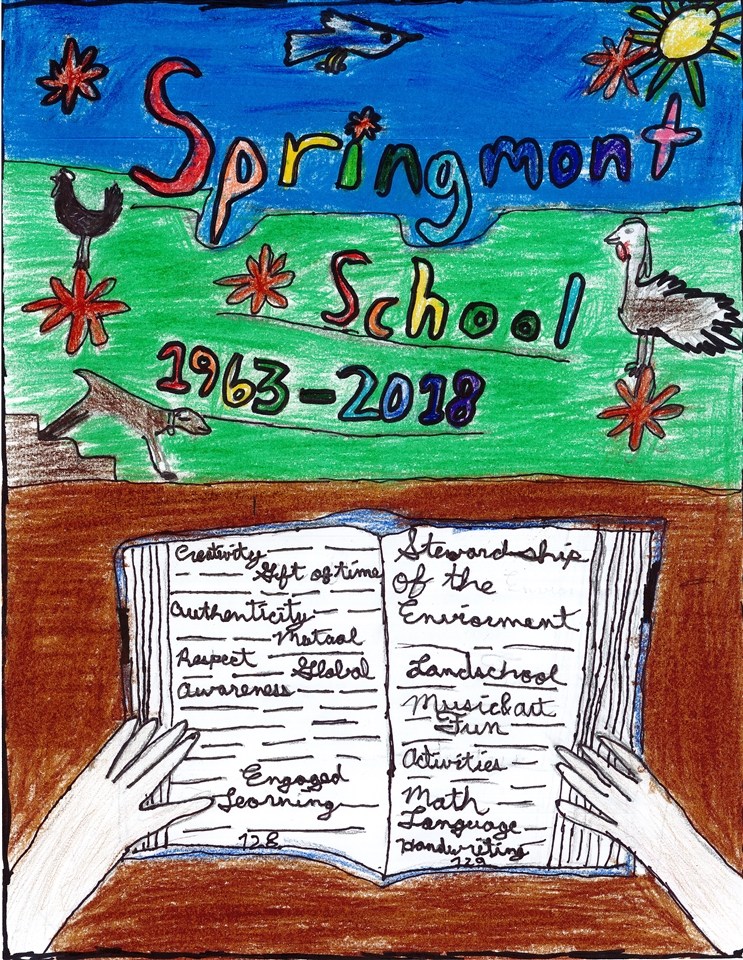 Springmont
School
1963-2018
Creativity
Gift of time
Authenticity
Mutaal
Respect Global
Awareness
Engaged
Learning
128
Stewardship
Of the
Enviorment
Landschool
Music&art
Fun
Activities
Math
Language
Handwriting
129